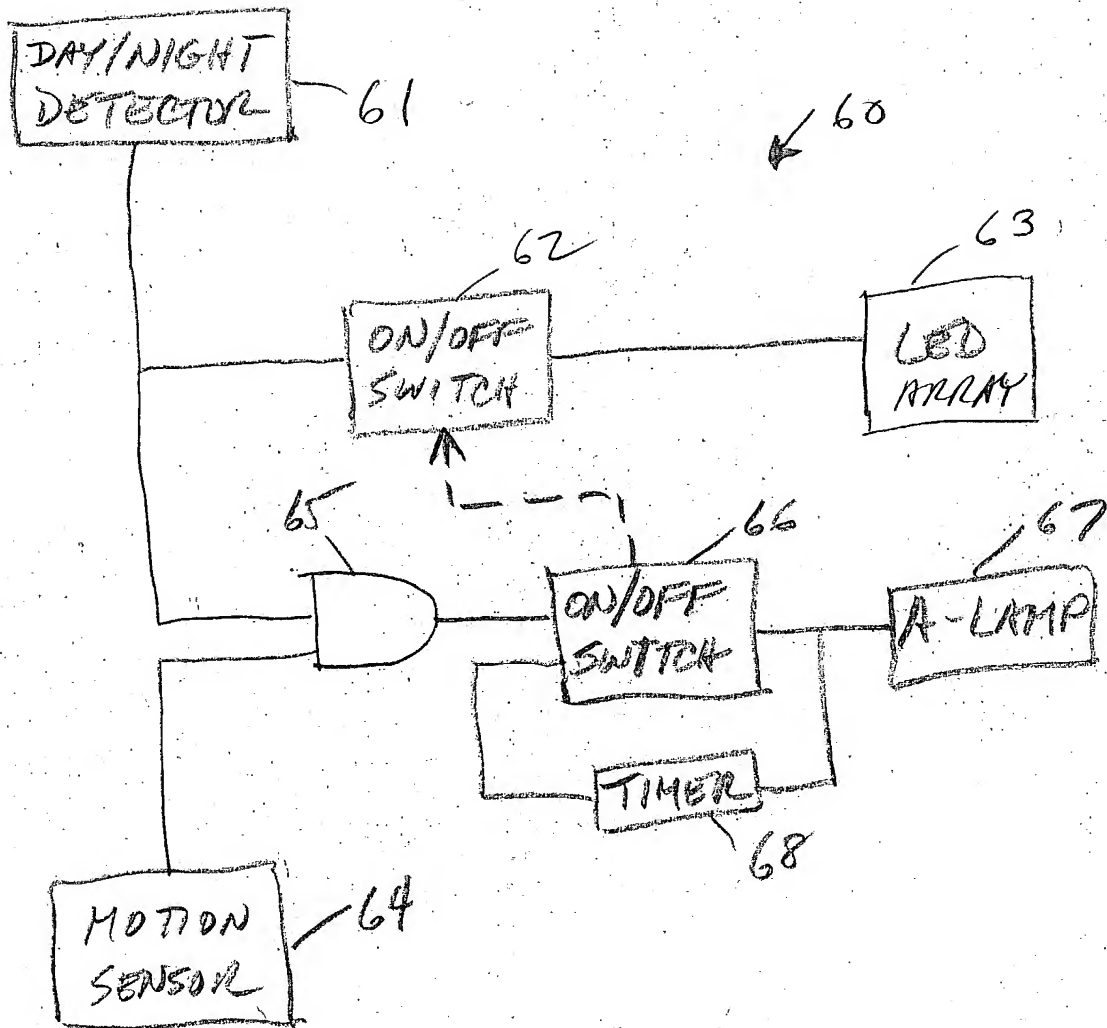 DAY/NIGHT
DETECTOR
61
60
62
63
ON/OFF
SWITCH
LED
ARRAY
65
66
67
ON/OFF
SWITCH
A-LAMP
TIMER
68
MOTION
SENSOR
64